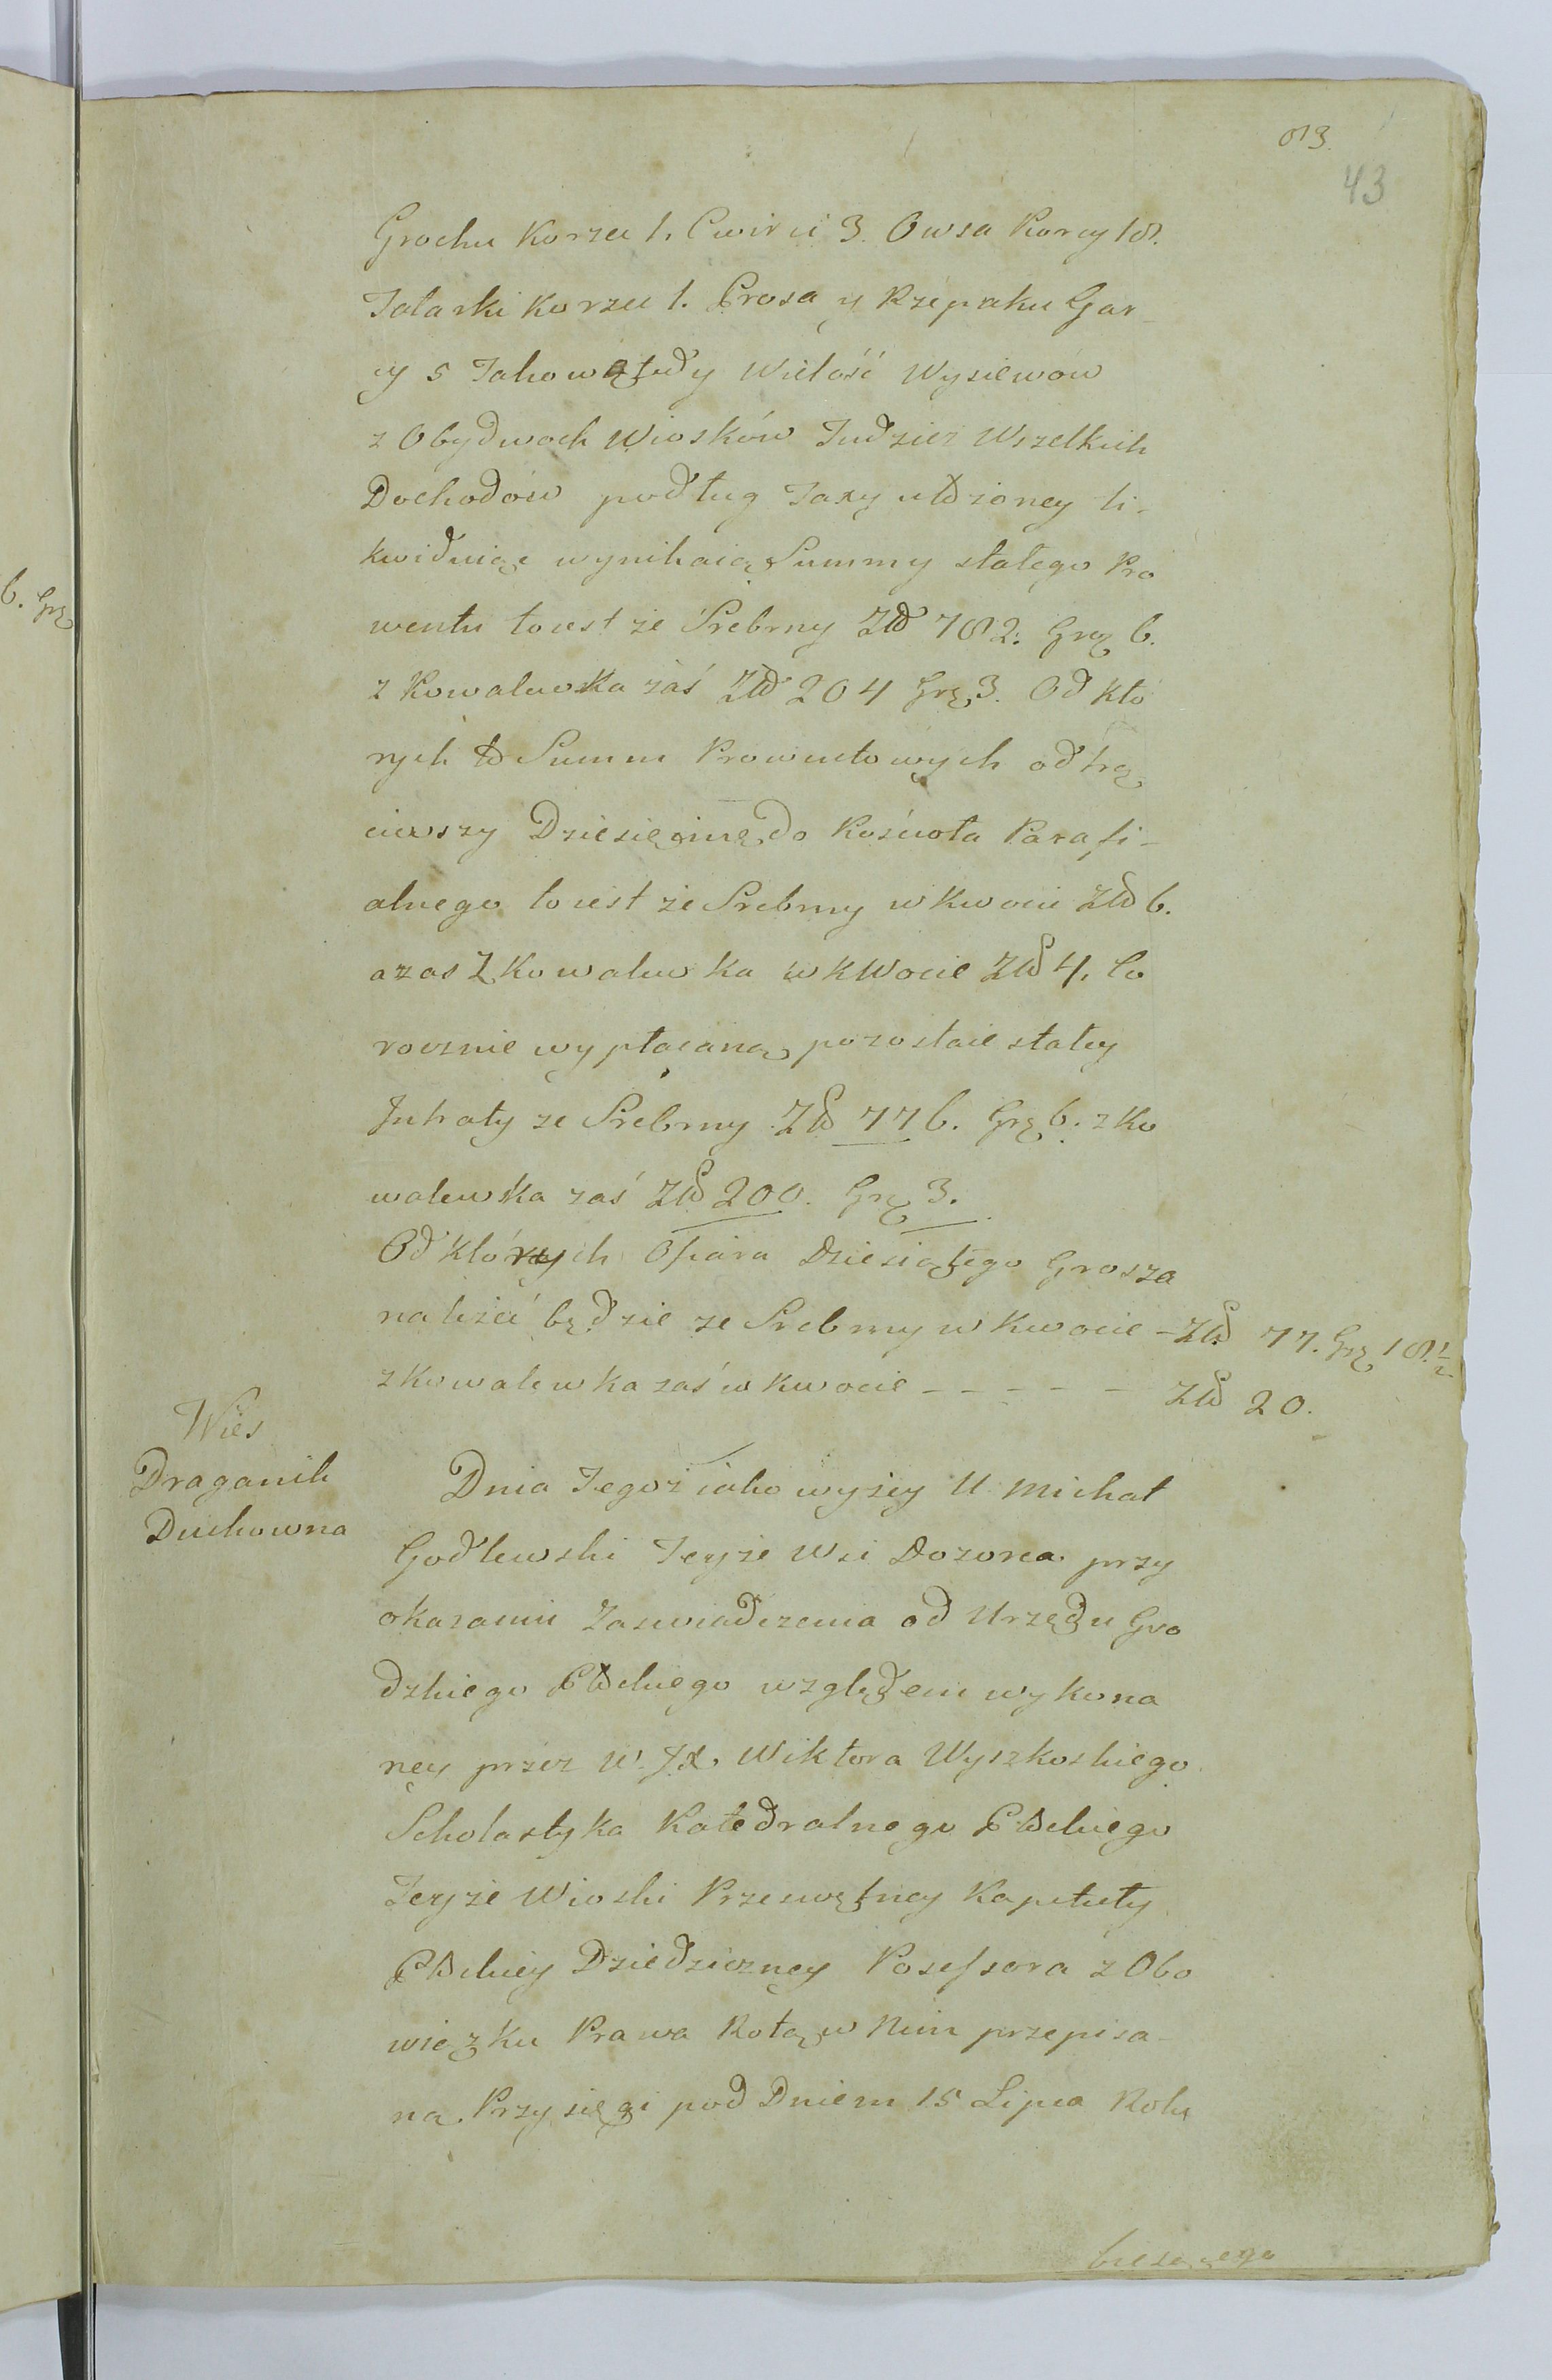 83.
43
Grochu Korzec 1. Cwirci 3. Owsa Korcy 18.
Tatarki Korzec 1. Prosa y Rzepaku Gar-
cy 5 Takową tedy Wielość Wysiewow
z Obydwoch Wiosków Tudzież Wszelkich
Dochodów podług Taxy utłdzoney li-
kwiduiąc wynikaią Summy stałego Pro
wentu toiest ze Srebrny Złł 782. Grą 6.
z Kowalewska zaś Złł 204 Grą 3. Od któ
rych tł Summ Prowentowych odtrą
ciwszy Dziesięcinę do Kościoła Parafi-
alnego to iest ze Srebrny w Kwocie Złł 6.
a zas z Kowalewka w kwocie Złł 4. Co
rocznie wypłacaną, pozostaie stałey
Intraty ze Srebrny Złł 776. Grą 6. z Ko
walewska zaś Złł 200. Grą 3.
Od których Ofiara Dziesiątego Grosza
należeć będzie ze Srebrny w Kwocie - Złł 77. Grą 18 1/2.
z Kowalewka zaś w Kwocie - - - - - Złł 20.
Wies
Draganih
Duchowna
Dnia Tegoż iako wyżey U Michał
Godlewski Teyże Wsi Dozorca przy
okazaniu Zaswiadczenia od Urzędu Gro
dzkiego Płłckiego względem wykona
ney przez W. JX. Wiktora Wyszkoskiego
Scholastyka Katedralnego Płłckiego
Teyże Wioski Przeswętney Kapituły
Płłckiey Dziedziczney Posessora z Obo
wiązku Prawa Rotą w Nim przepisa-
ną. Przysięgi pod Dniem 15 Lipca Roku
bieżącego
6. Grą